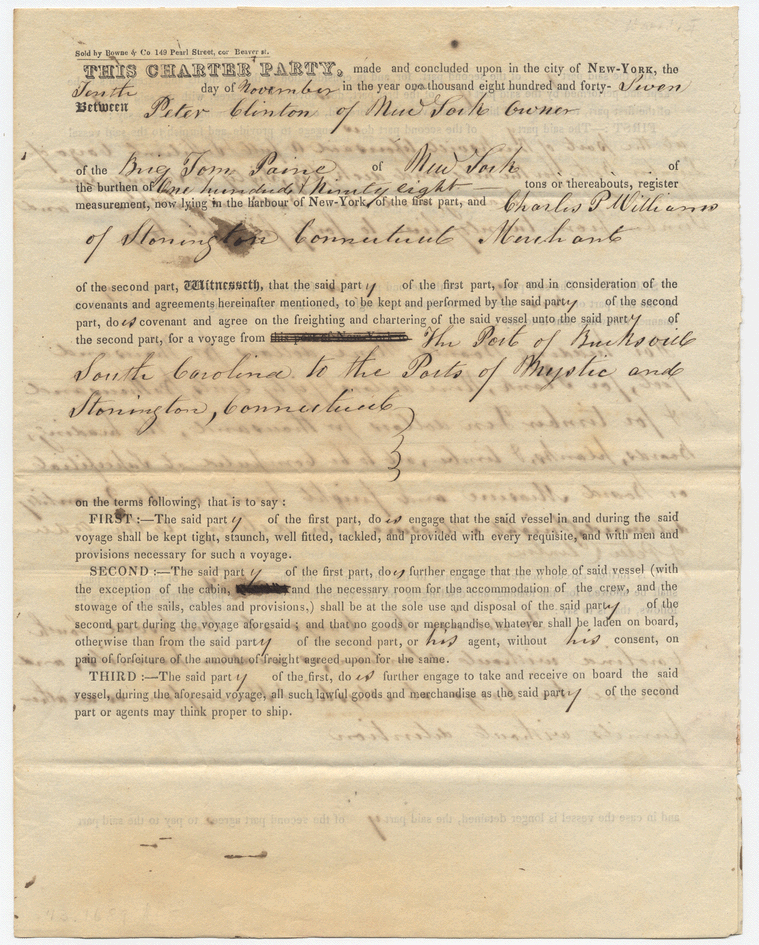 Sold by Bowne & Co. 149 Pearl Street, cor Beaver st.
THIS CHARTER PARTY, made and concluded upon in the city of NEW-YORK, the
Tenth day of November in the year one thousand eight hundred and forty- Seven
Between Peter Clinton of New York Owner
of the Brig Tom Paine of New York of
the burthen of One hundred & Ninety eight — tons or thereabouts, register
measurement, now lying in the harbour of New-York, of the first part, and Charles P Williams
of Stonington Connecticut Merchant
of the second part, Witnesseth, that the said party of the first part, for and in consideration of the
covenants and agreements hereinafter mentioned, to be kept and performed by the said party of the second
part, does covenant and agree on the freighting and chartering of the said vessel unto the said party of
the second part, for a voyage from The Port of Bucksvill
South Carolina to the Ports of Mystic and
Stonington, Connecticut
on the terms following, that is to say:
FIRST:—The said party of the first part, does engage that the said vessel in and during the said
voyage shall be kept tight, staunch, well fitted, tackled, and provided with every requisite, and with men and
provisions necessary for such a voyage.
SECOND:—The said party of the first part, does further engage that the whole of said vessel (with
the exception of the cabin, and the necessary room for the accommodation of the crew, and the
stowage of the sails, cables and provisions,) shall be at the sole use and disposal of the said party of the
second part during the voyage aforesaid; and that no goods or merchandise whatever shall be laden on board,
otherwise than from the said party of the second part, or his agent, without his consent, on
pain of forfeiture of the amount of freight agreed upon for the same.
THIRD:—The said party of the first, does further engage to take and receive on board the said
vessel, during the aforesaid voyage, all such lawful goods and merchandise as the said party of the second
part or agents may think proper to ship.